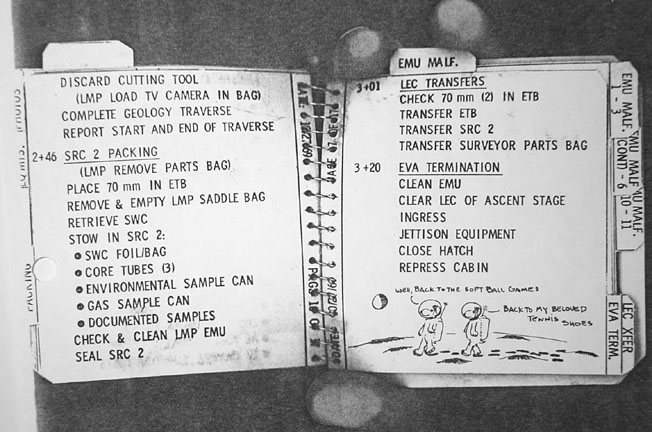 DISCARD CUTTING TOOL
(LMP LOAD TV CAMERA IN BAG)
COMPLETE GEOLOGY TRAVERSE
REPORT START AND END OF TRAVERSE
2+46 SRC 2 PACKING
(LMP REMOVE PARTS BAG)
PLACE 70 mm IN ETB
REMOVE & EMPTY LMP SADDLE BAG
RETRIEVE SWC
STOW IN SRC 2:
SWC FOIL/BAG
CORE TUBES (3)
ENVIRONMENTAL SAMPLE CAN
GAS SAMPLE CAN
DOCUMENTED SAMPLES
CHECK & CLEAN LMP EMU
SEAL SRC 2
PACKING
EMU MALF.
3+01 LEC TRANSFERS
CHECK 70 mm (2) IN ETB
TRANSFER ETB
TRANSFER SRC 2
TRANSFER SURVEYOR PARTS BAG
3+20 EVA TERMINATION
CLEAN EMU
CLEAR LEC OF ASCENT STAGE
INGRESS
JETTISON EQUIPMENT
CLOSE HATCH
REPRESS CABIN
WELL, BACK TO THE SOFT BALL GAMES
BACK TO MY BELOVED
TENNIS SHOES
EMU MALF.
1 - 3
EMU MALF
(CONT) - 6
EMU MALF.
10 - 11
LEC XFER
EVA TERM.